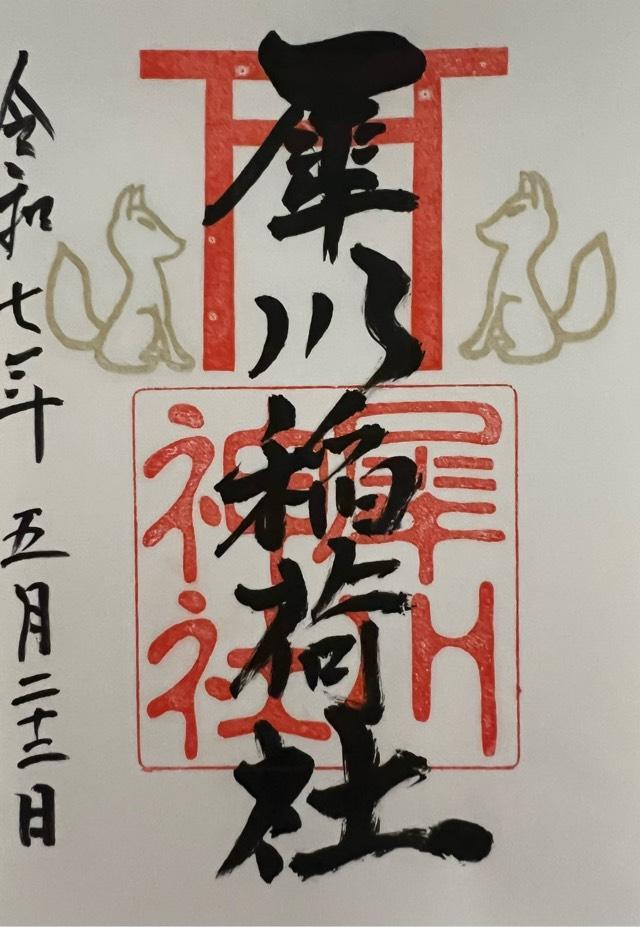 犀川稲荷社
犀川
神社
令和七年 五月二十二日